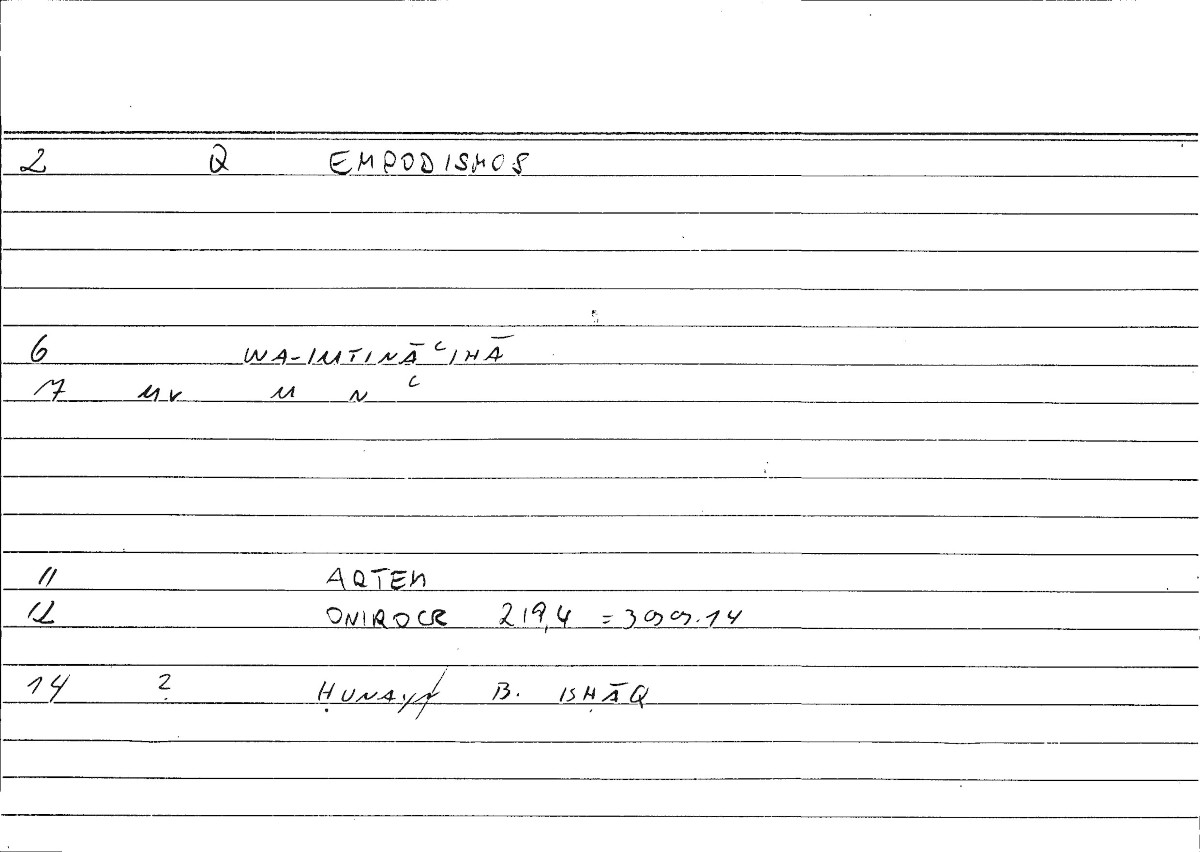 2 Q EMPODISMOS
6 WA-IMTINĀʿIHĀ
7 MV M N ʿ
11 ARTEM
12 ONIROCR 219,4 = 399.14
14 2 ḤUNAYN B. ISḤĀQ